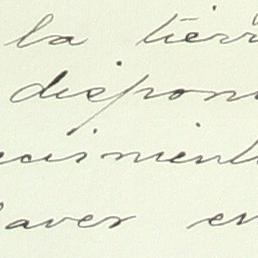 la tierr
dispon
ecismient
aver en